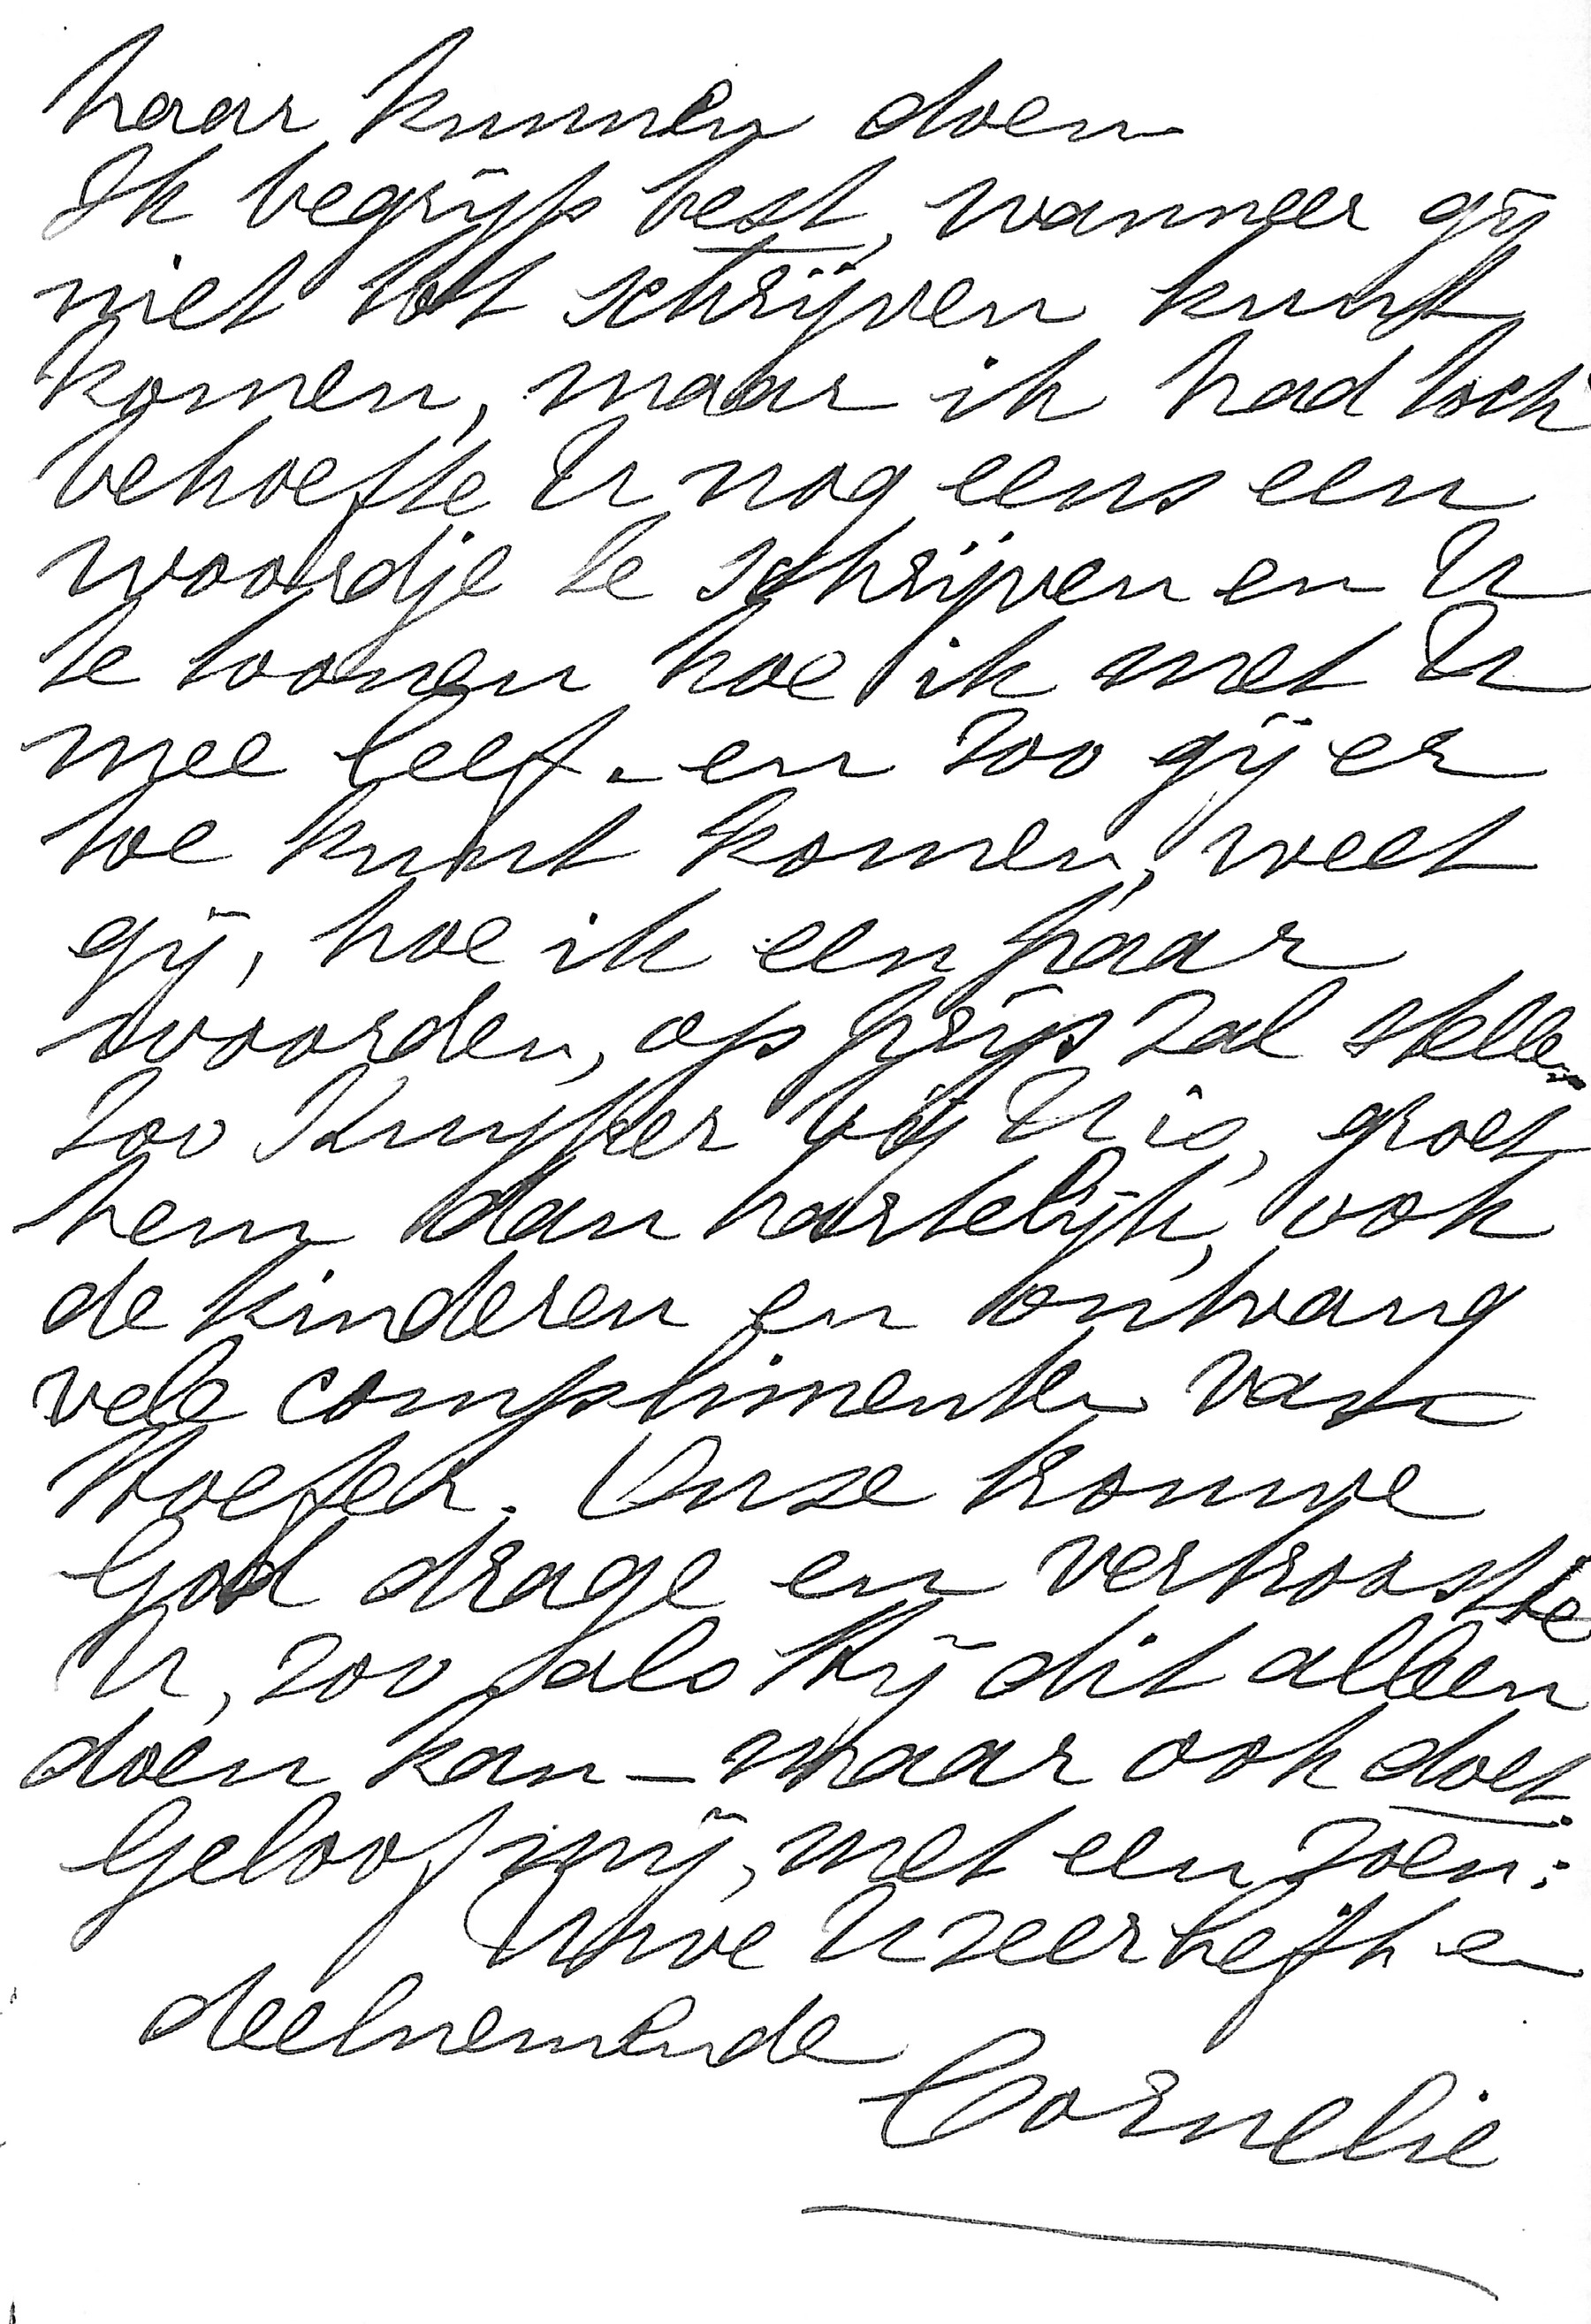 haar kunnen doen
Ik begrijp best, wanneer gij
niet tot schrijven kunt
komen, maar ik had toch
behoefte U nog eens een
woordje te schrijven en U
te toonen hoe ik met U
mee leef. en zoo gij er
toe kunt komen, weet
gij, hoe ik een paar
woorden, op prijs zal stellen
Zoo Kuyper bij U is, groet
hem dan hartelijk, ook
de kinderen en ontvang
vele complimenten van
Hoefer. Onze trouwe
God drage en vertrooste
U, zoo als Hij dit alleen
doen kan – maar ook doet.
Geloof mij, met een zoen:
Uwe U zeer liefh en
deelnemende
Cornelie